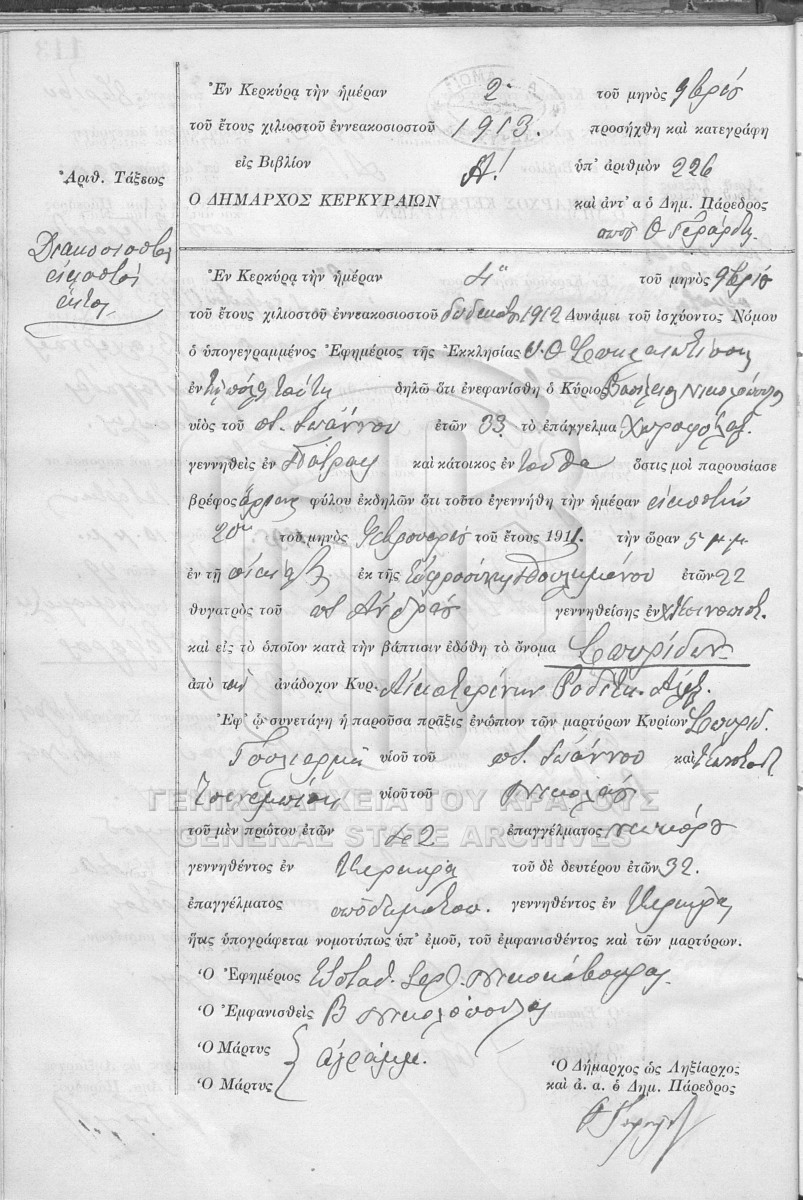 Ἐν Κερκύρᾳ τὴν ἡμέραν 2 τοῦ μηνὸς 9βρίου
τοῦ ἔτους χιλιοστοῦ ἐννεακοσιοστοῦ 1913. προσήχθη καὶ κατεγράφη
εἰς Βιβλίον Α! ὑπ' ἀριθμὸν 226
Ἀριθ. Τάξεως
Ο ΔΗΜΑΡΧΟΣ ΚΕΡΚΥΡΑΙΩΝ καὶ ἀντ' α ὁ Δημ. Πάρεδρος
Διακοσιοστὸς
εἰκοστὸς
ἕκτος
Ἐν Κερκύρᾳ τὴν ἡμέραν 4 τοῦ μηνὸς 9βρίου
τοῦ ἔτους χιλιοστοῦ ἐννεακοσιοστοῦ δωδεκάτου 1912 Δυνάμει τοῦ ἰσχύοντος Νόμου
ὁ ὑπογεγραμμένος Ἐφημέριος τῆς Ἐκκλησίας
ἐν τῇ πόλει ταύτῃ δηλῶ ὅτι ἐνεφανίσθη ὁ Κύριος Βασίλειος Νικολόπουλος
υἱὸς τοῦ ποτ. Ἰωάννου ἐτῶν 33 τὸ ἐπάγγελμα Χωροφύλαξ
γεννηθεὶς ἐν Πάτραις καὶ κάτοικος ἐν ταῦθα ὅστις μοὶ παρουσίασε
βρέφος ἄρρεν φύλου ἐκδηλῶν ὅτι τοῦτο ἐγεννήθη τὴν ἡμέραν εἰκοστὴν
20ην τοῦ μηνὸς Φεβρουαρίου τοῦ ἔτους 1911. τὴν ὥραν 5 μ.μ.
ἐν τῇ οἰκίᾳ ἐκ τῆς Εὐφροσύνης ἐτῶν 22
θυγατρὸς τοῦ ποτ. Ἀνδρέου γεννηθείσης ἐν
καὶ εἰς τὸ ὁποῖον κατὰ τὴν βάπτισιν ἐδόθη τὸ ὄνομα Σπυρίδων
ἀπὸ τὴν ἀνάδοχον Κυρ. Αἰκατερίνην
Ἐφ' ᾧ συνετάγη ἡ παροῦσα πρᾶξις ἐνώπιον τῶν μαρτύρων Κυρίων Σπυρίδ.
υἱοῦ τοῦ ποτ. Ἰωάννου καὶ
υἱοῦ τοῦ Νικολάου
ΓΕΝΙΚΑ ΑΡΧΕΙΑ ΤΟΥ ΚΡΑΤΟΥΣ
GENERAL STATE ARCHIVES
τοῦ μὲν πρώτου ἐτῶν 42 ἐπαγγέλματος
γεννηθέντος ἐν Κερκύρᾳ τοῦ δὲ δευτέρου ἐτῶν 32.
ἐπαγγέλματος ὑποδηματοπ. γεννηθέντος ἐν Κερκύρᾳ
ἥτις ὑπογράφεται νομοτύπως ὑπ' ἐμοῦ, τοῦ ἐμφανισθέντος καὶ τῶν μαρτύρων.
Ὁ Ἐφημέριος Εὐστάθ.
Ὁ Ἐμφανισθεὶς Β Νικολόπουλος
Ὁ Μάρτυς
ἀγράμμ.
Ὁ Μάρτυς
Ὁ Δήμαρχος ὡς Ληξίαρχος
καὶ ἀ. α. ὁ Δημ. Πάρεδρος